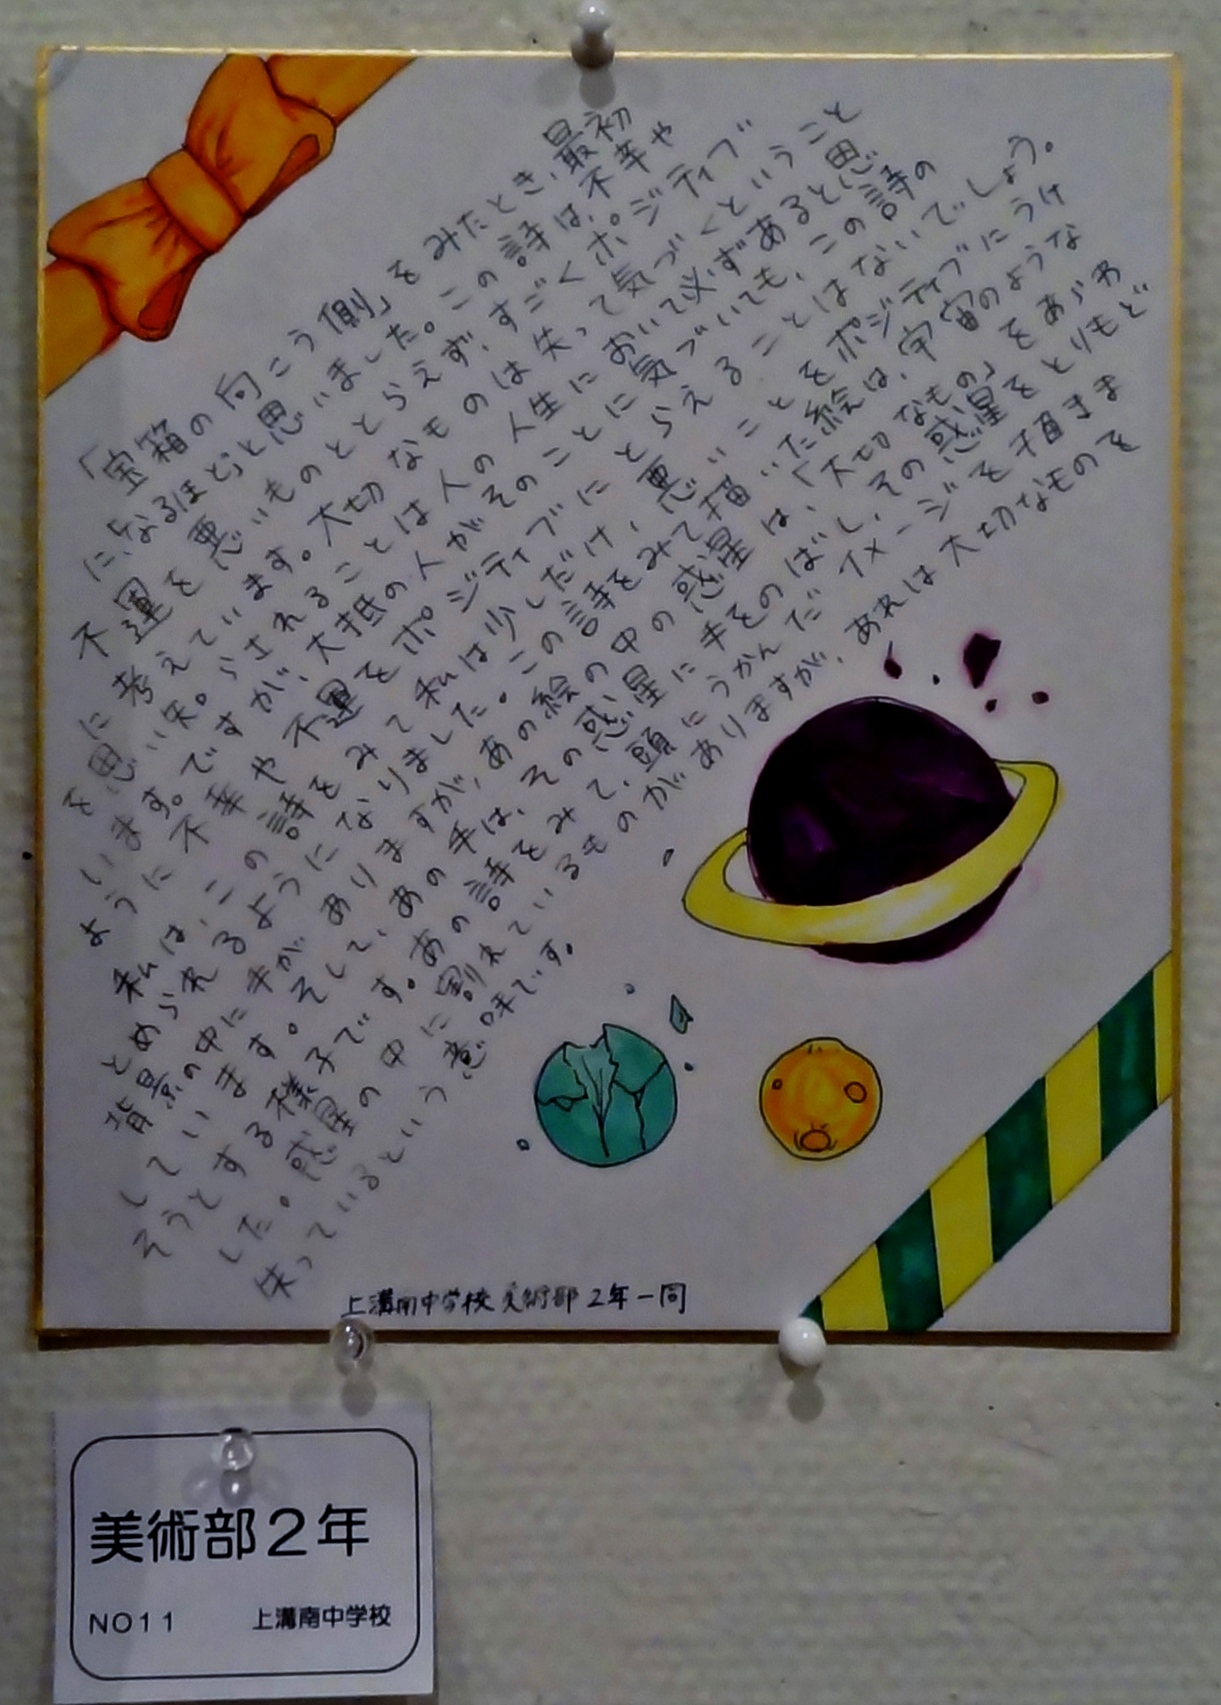 「宝箱の向こう側」をみたとき、最初
に、なるほど。と思いました。この詩は、不幸や
不運を悪いものととらえず、すごくポジティブ
に考えています。大切なものは失って気づくということ
を思い知らされることは人の人生において必ずあると思
います。ですが、大抵の人がそのことに気づいても、この詩の
ように不幸や不運をポジティブにとらえることはないでしょう。
私は、この詩をみて私は少しだけ、悪いことをポジティブにうけ
とめられるようになりました。この詩をみて描いた絵は、宇宙のような
背景の中に手がありますが、あの絵の中の惑星は、「大切なもの」をあらわ
しています。そして、あの手は、その惑星に手をのばし、その惑星をとりもど
そうとする様子です。あの詩をみて、頭にうかんだイメージを ま
した。惑星の中に割れているものがありますが、あれは大切なものを
失っているという意味です。
上溝南中学校 美術部 2年一同
美術部2年
NO11 上溝南中学校